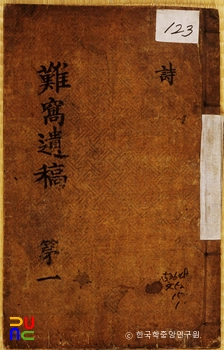 123
詩
難窩遺稿
第一
ⓒ 한국학중앙연구원